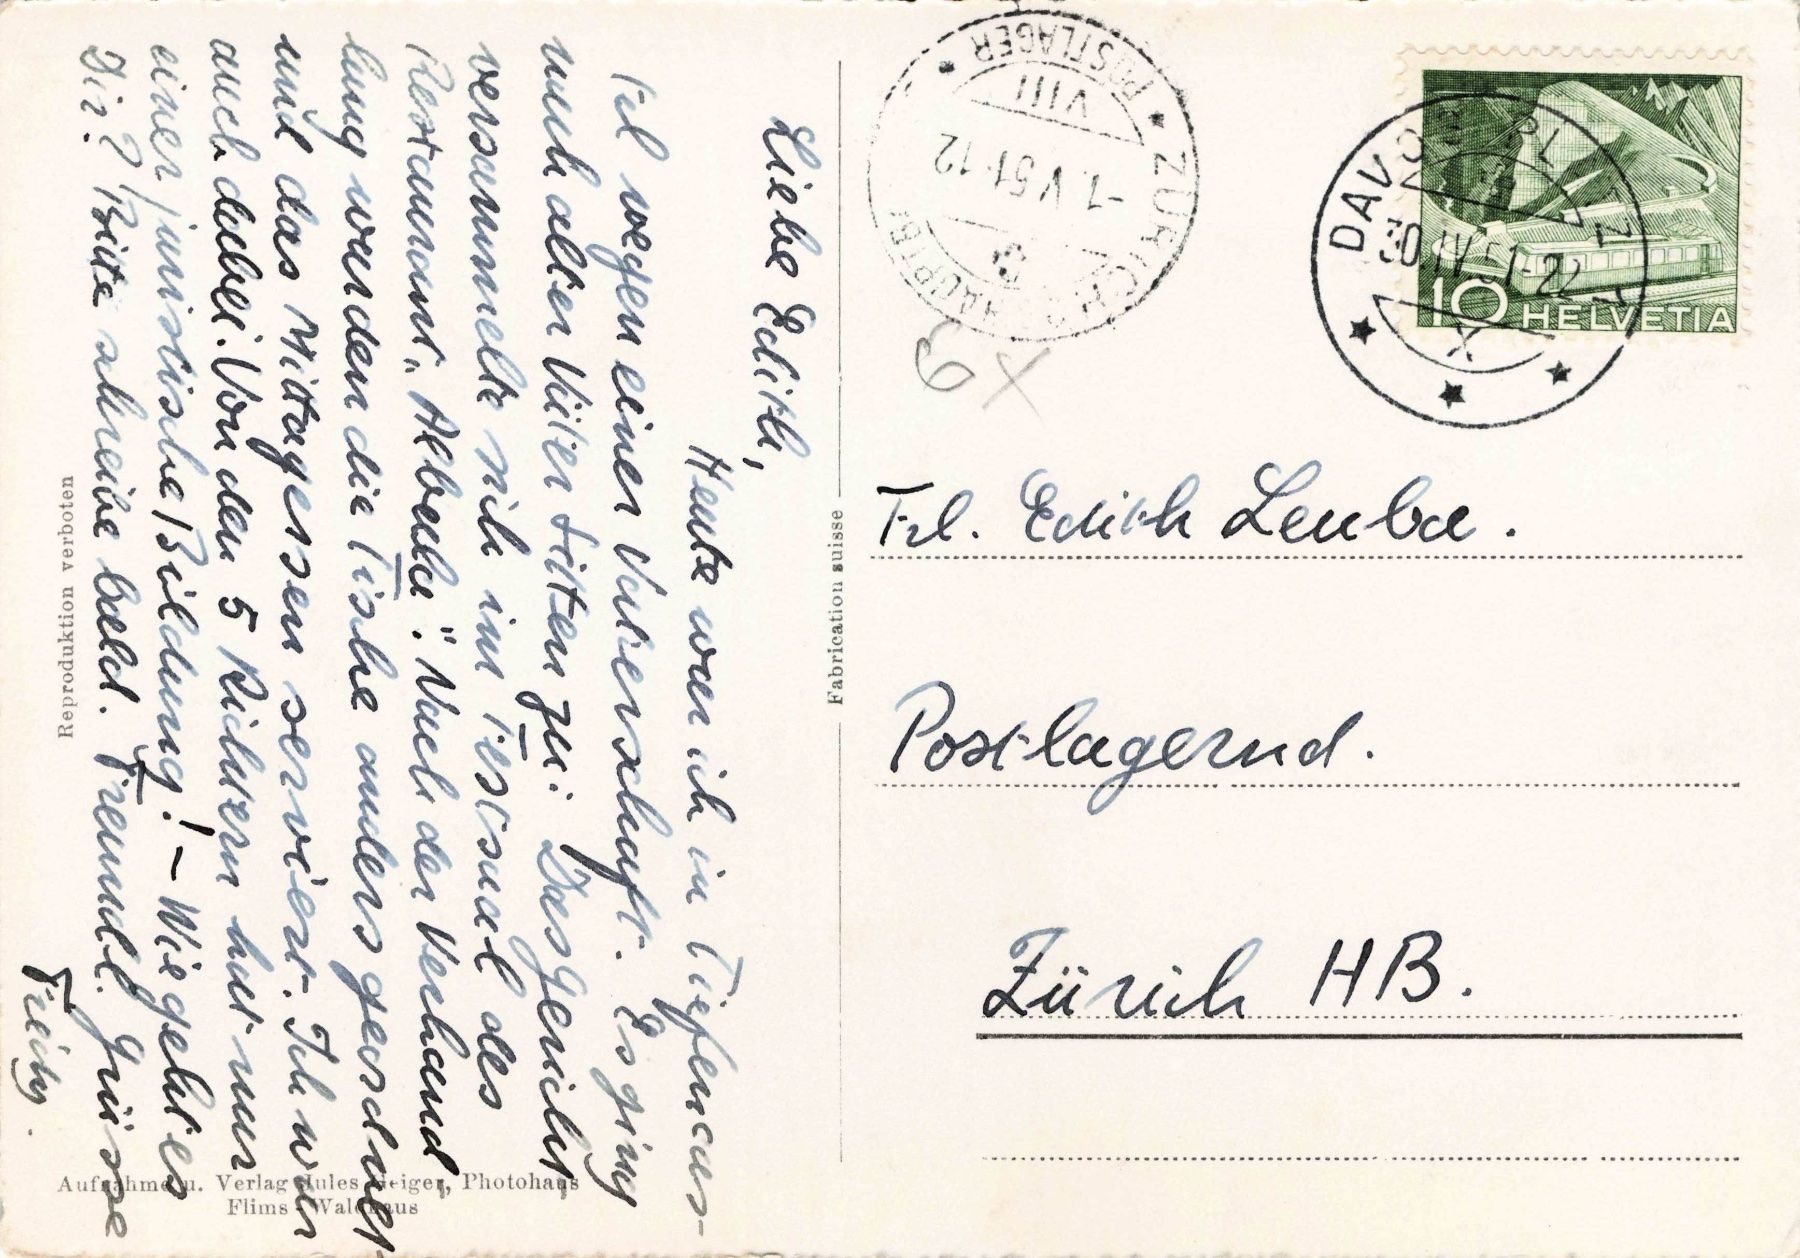 Liebe Edith,
Heute war ich in Tiefencas-
tel wegen einer Vaterschaft. Es ging
nach alten Väter Sitten zu: Das Gericht
versammelte sich im Esssaal des
Restaurant „Albula“. Nach der Verhand-
lung wurden die Tische anders geordnet
und das Mittagessen serviert. Ich war
auch dabei. Von den 5 Richtern hat nur
einer juristische Bildung! – Wie geht es
Dir? Bitte schreibe bald. Freundl. Grüsse
Fredy.
Reproduktion verboten
Aufnahme u. Verlag Jules Geiger, Photohaus
Flims - Waldhaus
Fabrication suisse
ZÜRICH HAUPTB.
POSTLAGER
VIII
-1.V 51-12
DAVOS PLATZ 1
30.IV 51-22
X
10 HELVETIA
Frl. Edith Leuba.
Postlagernd.
Zürich HB.